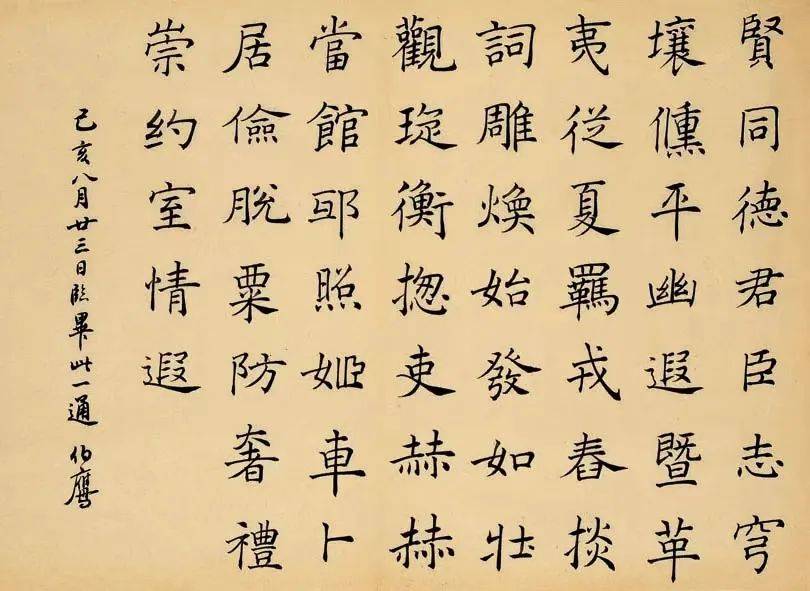 賢同德君臣志穹
壤儔平幽遐暨革
夷從夏羈戎舂掞
詞雕煥始發如壯
觀琁衡揔吏赫赫
當館邳照姬車卜
居儉脫粟防奢禮
崇約室情遐
己亥八月廿三日臨畢此一通 伯鷹